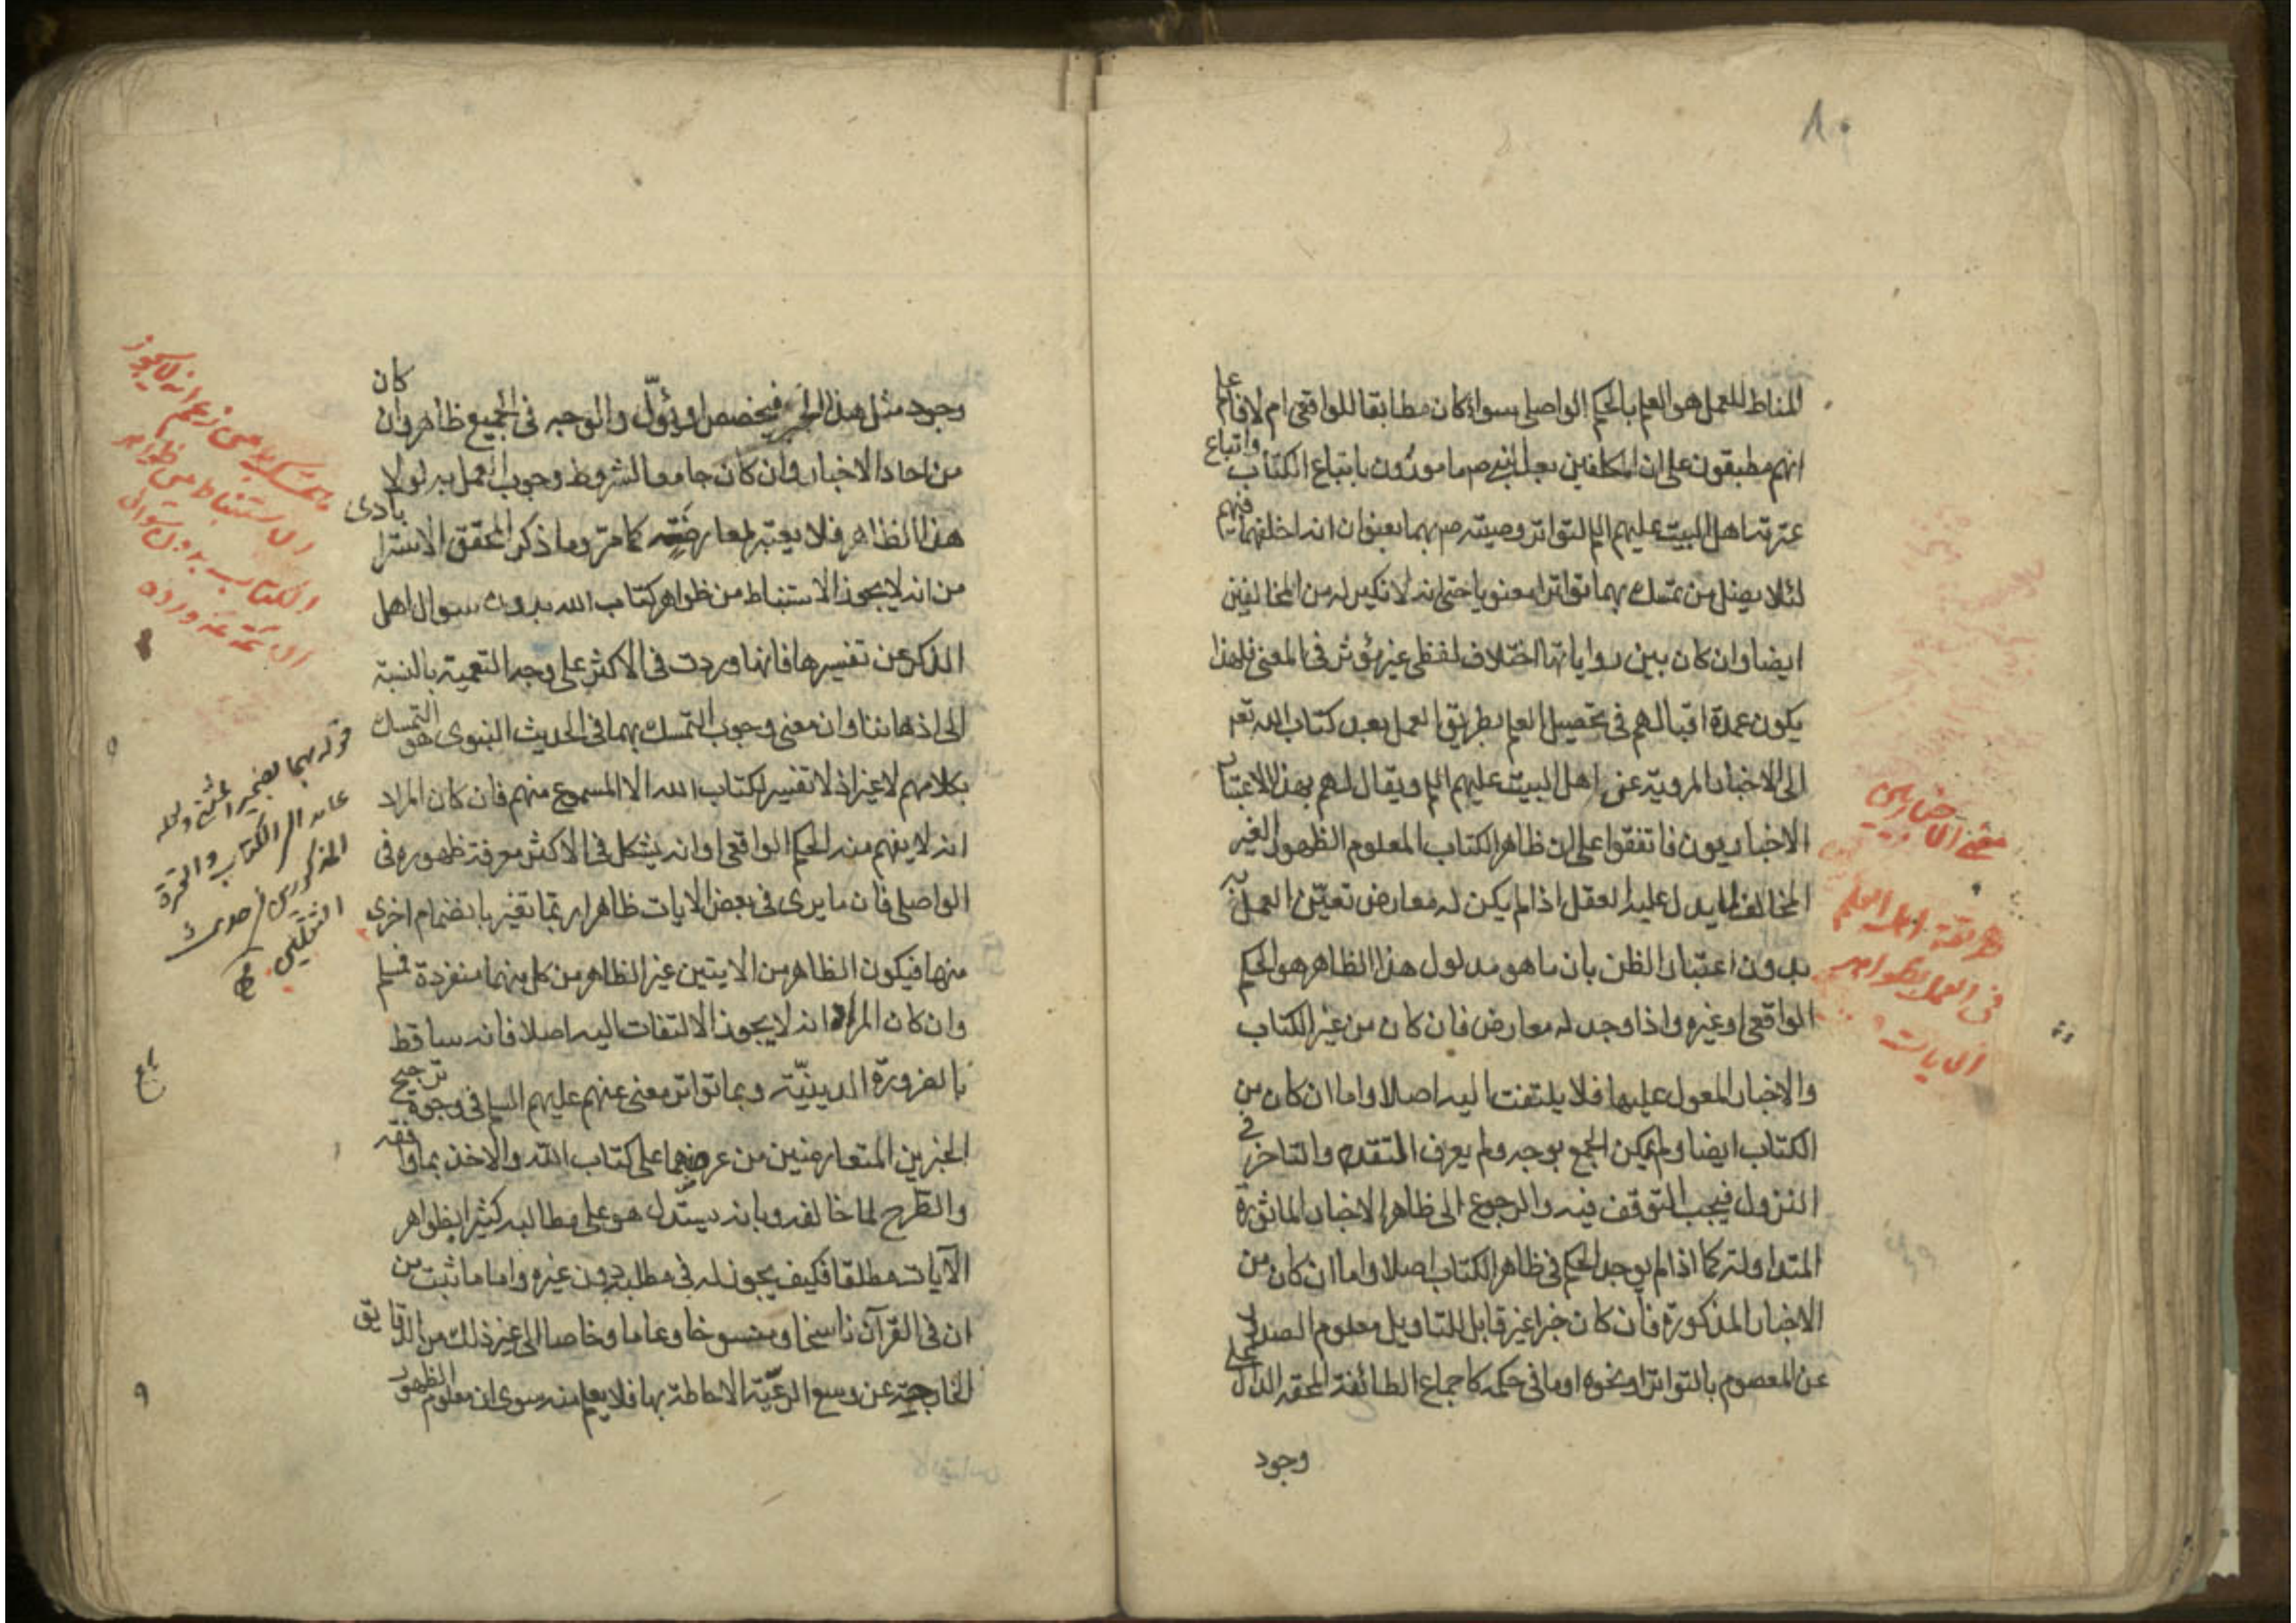 ٨٠
المناط للعمل هو العلم بالحكم الواصلي سواء كان مطابقا للواقعي ام لا فاعلم
انهم مطبقون على ان المكلفين بعد النبي ص مامورون باتباع الكتاب واتباع
عترته اهل البيت عليهم السلم لتواتر وصيته ص بهما بعنوان انه اخلفهما فيهم
لئلا يضل من تمسك بهما تواترا معنويا حتى انه لا نكير له من المخالفين
ايضا وان كان بين رواياتها اختلاف لفظي غير مؤثر في المعنى فلهذا
يكون عمدة اقبالهم في تحصيل العلم بطريق العمل بعد كتاب الله تعالى
الى الاخبار المروية عن اهل البيت عليهم السلم ويقال لهم بهذا الاعتبار
الاخباريون فاتفقوا على ان ظاهر الكتاب المعلوم الظهور الغير
المخالف لما يدل عليه العقل اذا لم يكن له معارض تعين العمل به
بدون اعتبار الظن بان ما هو مدلول هذا الظاهر هو الحكم
الواقعي او غيره واذا وجد له معارض فان كان من غير الكتاب
والاخبار المعول عليها فلا يلتفت اليه اصلا واما ان كان من
الكتاب ايضا ولم يمكن الجمع بوجه ولم يعرف المتقدم والمتاخر في
النزول فيجب التوقف فيه والرجوع الى ظاهر الاخبار الماثورة
المتداولة كما اذا لم يوجد الحكم في ظاهر الكتاب اصلا واما ان كان من
الاخبار المذكورة فان كان خبرا غير قابل للتاويل معلوم الصدور
عن المعصوم بالتواتر او نحوه او ما في حكمه كاجماع الطائفة المحقة الدال على
وجود
معنى الاخباريين
طريقة اهل العلم
في العمل بظواهر
الايات
وجود مثل هذا الخبر فيخصص او يؤّل والوجه في الجميع ظاهر وان كان
من احاد الاخبار وان كان جامعا لشروط وجوب العمل به لولا
هذا الظاهر فلا يعتبر لمعارضته كما مرّ وما ذكر المحقق الاسترابادى
من انه لا يجوز الاستنباط من ظواهر كتاب الله بدون سوال اهل
الذكر عن تفسيرها فانها وردت في الاكثر على وجه التعمية بالنسبة
الى اذهاننا وان معنى وجوب التمسك بهما في الحديث النبوى هو التمسك
بكلامهم لا غير اذ لا تفسير لكتاب الله الا المسموع منهم فان كان المراد
انه لا يفهم منه الحكم الواقعي او انه يشكل في الاكثر معرفة ظهوره في
الواصلي فان ما يرى في بعض الايات ظاهرا ربما تغير بانضمام اخرى
منها فيكون الظاهر من الايتين غير الظاهر من كل منهما منفردة فمسلم
وان كان المراد انه لا يجوز الالتفات اليه اصلا فانه ساقط
بالضرورة الدينيّة وبما تواتر معنى عنهم عليهم السلم في وجوه ترجيح
الخبرين المتعارضين من عرضهما على كتاب الله والاخذ بما وافقه
والطرح لما خالفه وبانه يستدل هو على مطالبه كثيرا بظواهر
الآيات مطلقا فكيف يجوز له في مطلبه دون غيره واما ما ثبت من
ان في القرآن ناسخا ومنسوخا وعاما وخاصا الى غير ذلك من الدقايق
الخارجة عن وسع الرعيّة الاحاطة بها فلا يعلم منه سوى ان معلوم الظهور
من زعم انه لا يجوز
الاستنباط من ظواهر
الكتاب بدون سوال
قوله بهما بضمير المثنى
عائد الى الكتاب والعترة
المذكورين في حديث
الثقلين